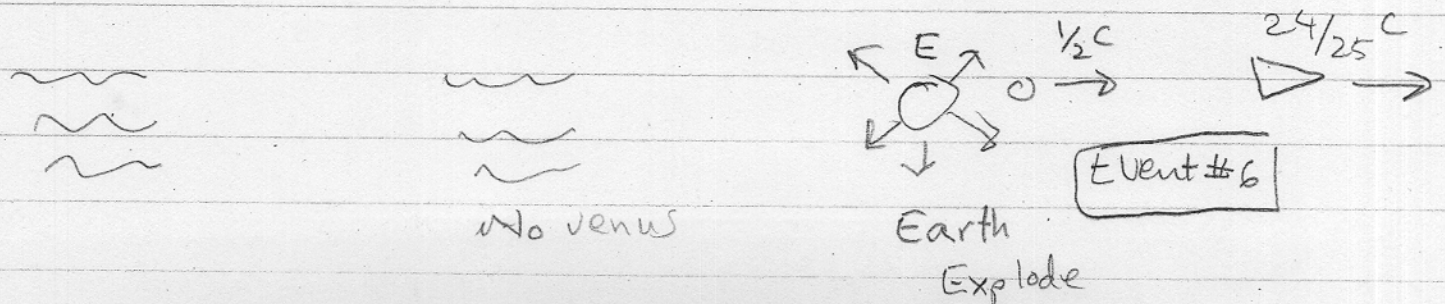 E ½ C 24/25 C
Event #6
No venus Earth
Explode